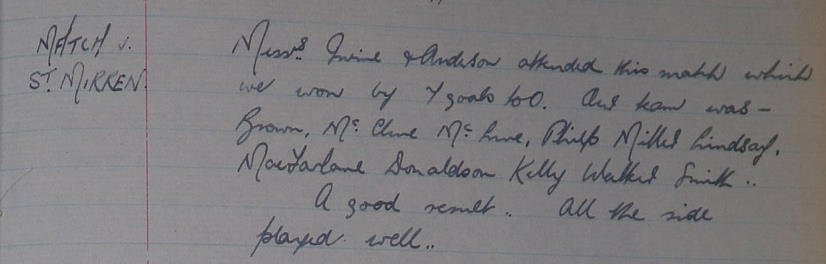 MATCH v.
ST. MIRREN.
Messrs. Irvine & Anderson attended this match which
we won by 7 goals to 0. Our team was –
Brown, Mc Clure Mc Lure, Philp Miller Lindsay,
Macfarlane Donaldson Kelly Walker Smith ..
A good result. All the side
played well..